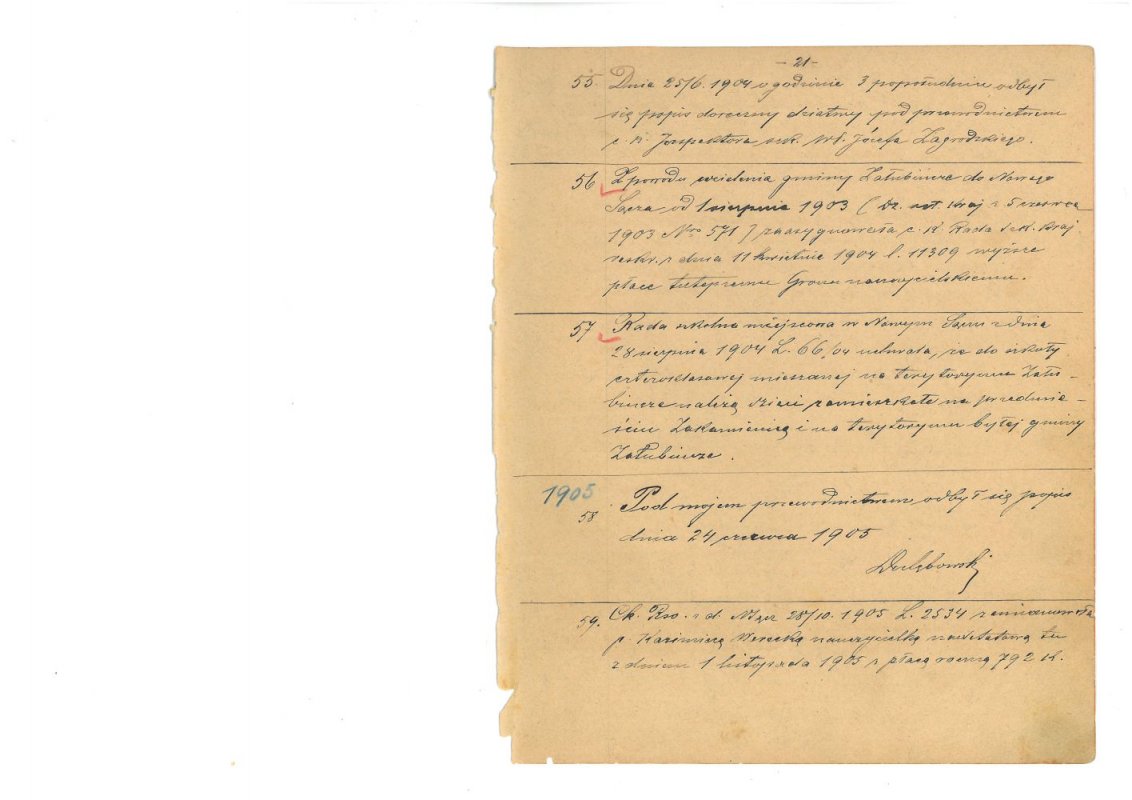 - 21 -
55. Dnia 25/6. 1904 o godzinie 3 popołudniu odbył
się popis doroczny dziatwy pod przewodnictwem
c. k. Inspektora szk. Wł. Józefa Zagrodzkiego.
56 Z powodu wcielenia gminy Załubincze do Nowego
Sącza od 1 sierpnia 1903 ( Dz. ust. kraj z 5 czerwca
1903 Nro 571 ) zaasygnowała c. k. Rada szk. kraj.
reskr. z dnia 11 kwietnia 1904 l. 11309 wyższe
płace tutejszemu Gronu nauczycielskiemu.
57 Rada szkolna miejscowa w Nowym Sączu z dnia
28 sierpnia 1904 L. 66/04 uchwala, że do szkoły
czteroklasowej mieszanej na terytoryum Zału-
bincze należą dzieci zamieszkałe na przedmie-
ściu Zakamienicą i na terytoryum byłej gminy
Załubincze.
1905
58 Pod mojem przewodnictwem odbył się popis
dnia 24 czerwca 1905
59. Ck. Rso. z d. 28/10. 1905 L. 2534 zamianowała
p. Kazimierę nauczycielką nadetatową tu
z dniem 1 listopada 1905 z płacą roczną 792 K.